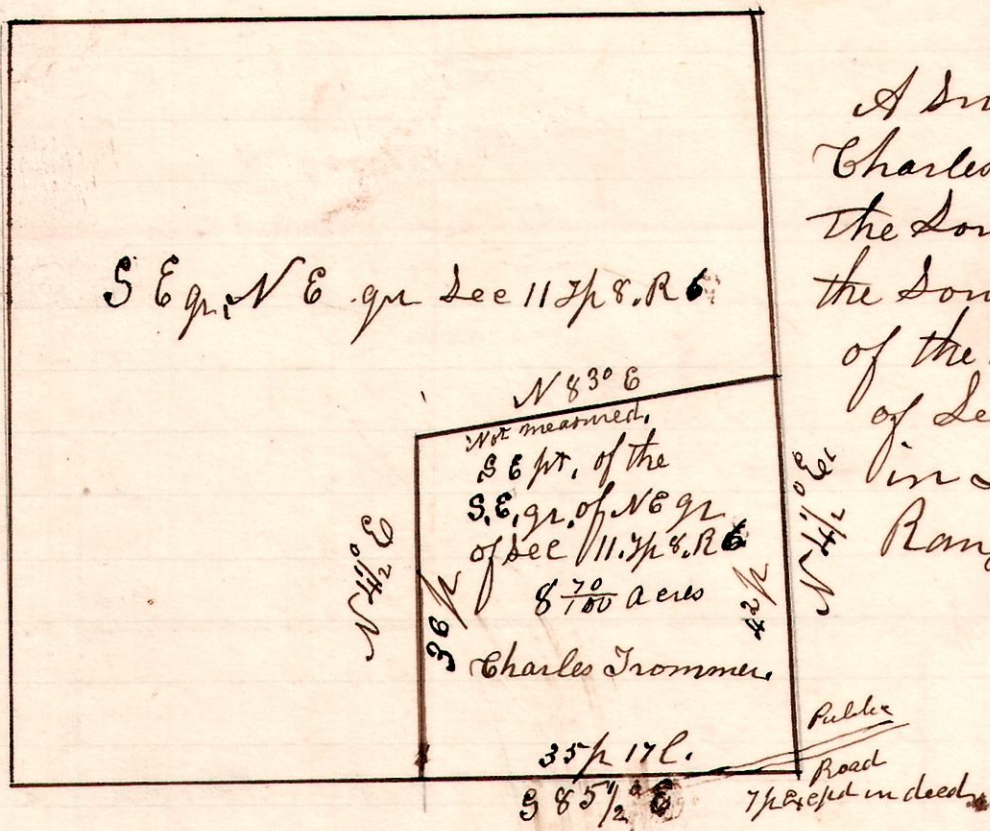 S E qr, N E qr Sec 11 Tp 8. R 6
N 83° E
Not measured.
S E pt, of the
S. E, qr, of N E qr
of Sec 11. Tp 8. R 6
8 70/100 acres
Charles Trommer.
N 4 1/2° E
36 p
42 p
N 4 1/2° E,
35 p 17 l.
S 85 1/2° E
Public
Road
in deed
A
Charles
The
the
of the
of Sec
in